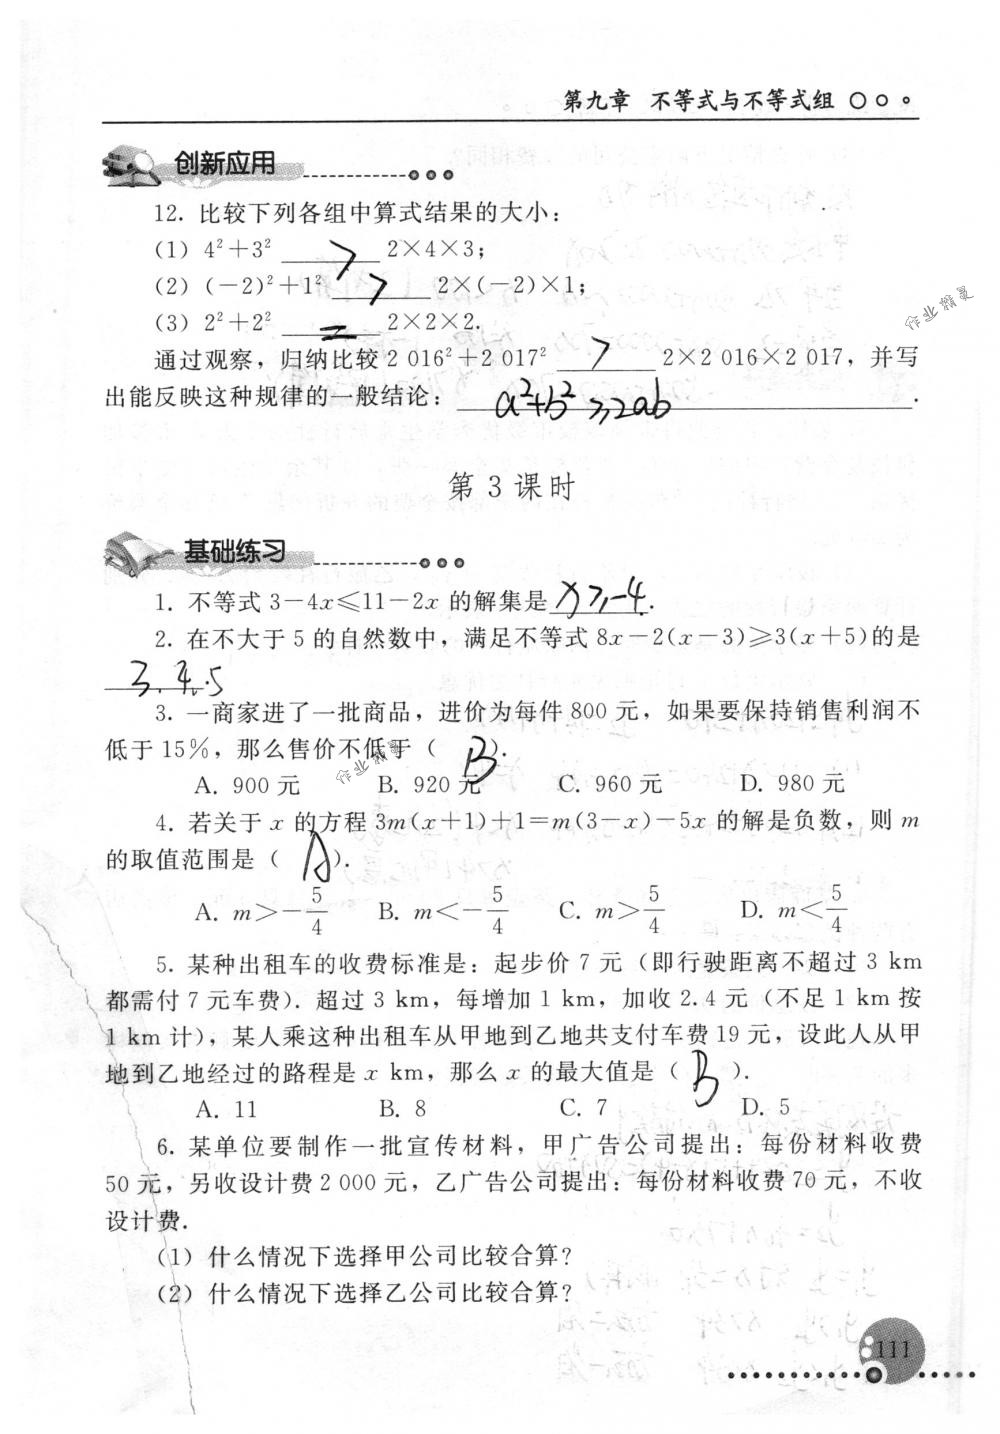 第九章 不等式与不等式组
创新应用
12. 比较下列各组中算式结果的大小：
(1) 4²+3² > 2×4×3；
(2) (-2)²+1² > 2×(-2)×1；
(3) 2²+2² = 2×2×2.
通过观察，归纳比较 2 016²+2 017² > 2×2 016×2 017，并写
出能反映这种规律的一般结论： a²+b²≥2ab .
第 3 课时
基础练习
1. 不等式 3-4x≤11-2x 的解集是 x≥-4 .
2. 在不大于 5 的自然数中，满足不等式 8x-2(x-3)≥3(x+5)的是
3.4.5
3. 一商家进了一批商品，进价为每件 800 元，如果要保持销售利润不
低于 15%，那么售价不低于（ B ）.
A. 900 元 B. 920 元 C. 960 元 D. 980 元
4. 若关于 x 的方程 3m(x+1)+1=m(3-x)-5x 的解是负数，则 m
的取值范围是（ A ）.
A. m>-5/4 B. m<-5/4 C. m>5/4 D. m<5/4
5. 某种出租车的收费标准是：起步价 7 元（即行驶距离不超过 3 km
都需付 7 元车费）. 超过 3 km，每增加 1 km，加收 2.4 元（不足 1 km 按
1 km 计），某人乘这种出租车从甲地到乙地共支付车费 19 元，设此人从甲
地到乙地经过的路程是 x km，那么 x 的最大值是（ B ）.
A. 11 B. 8 C. 7 D. 5
6. 某单位要制作一批宣传材料，甲广告公司提出：每份材料收费
50 元，另收设计费 2 000 元，乙广告公司提出：每份材料收费 70 元，不收
设计费.
(1) 什么情况下选择甲公司比较合算？
(2) 什么情况下选择乙公司比较合算？
111
作业精灵
作业精灵